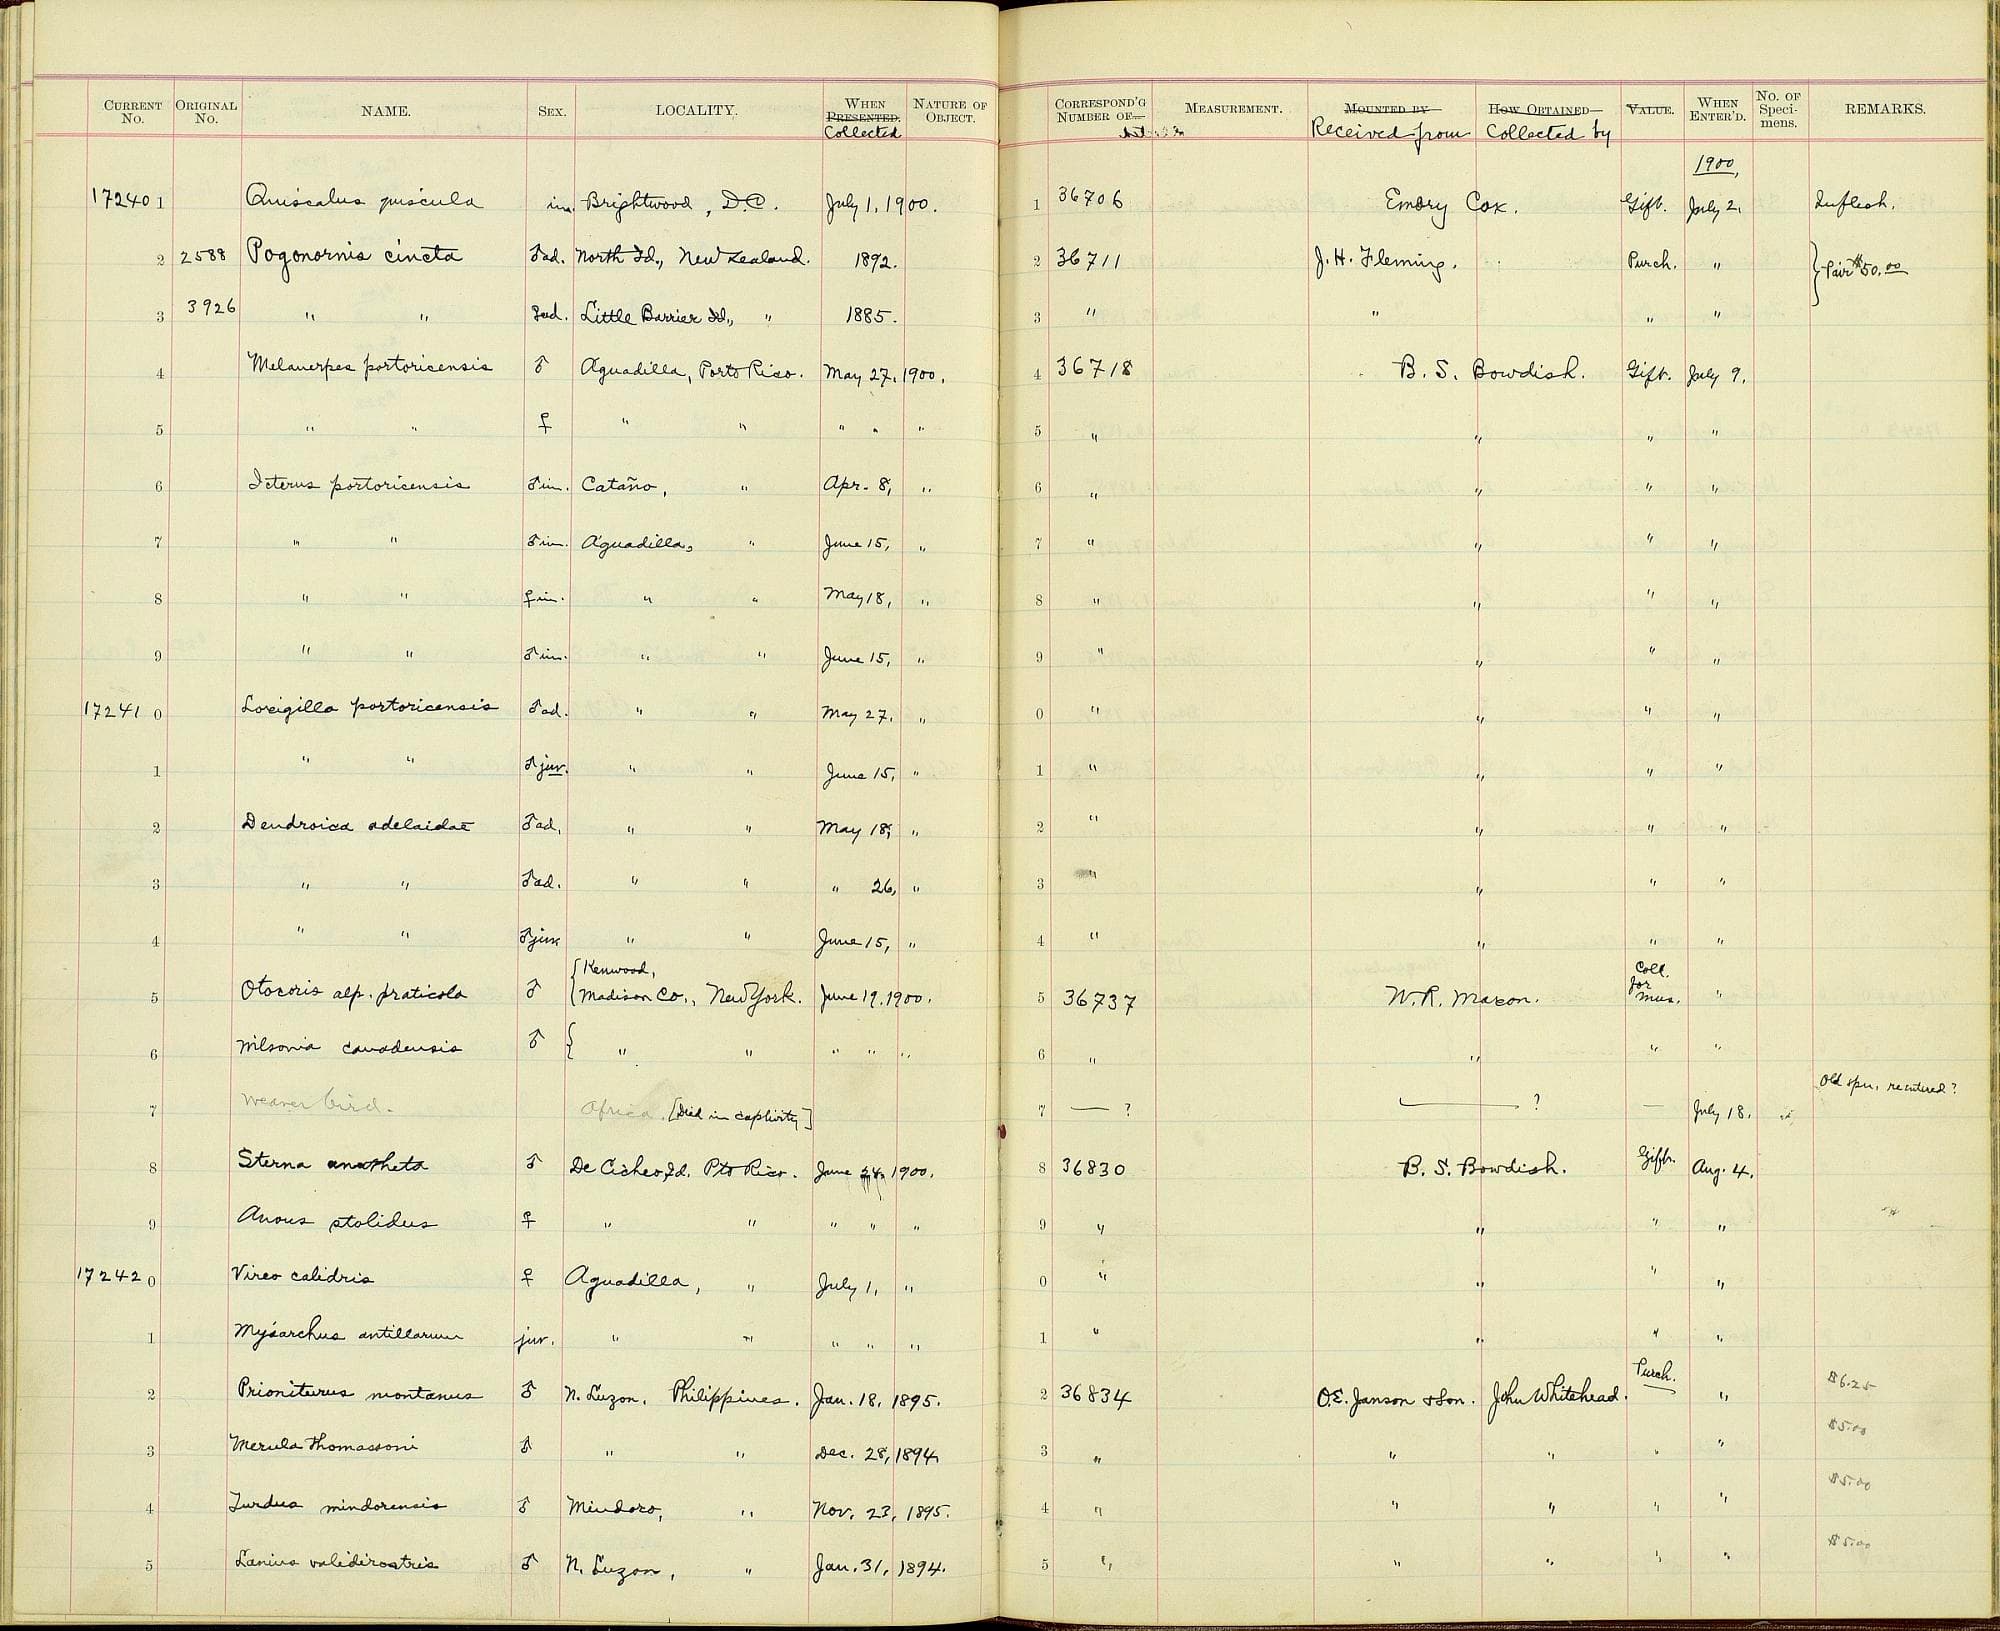 CURRENT No. ORIGINAL No. NAME. SEX. LOCALITY. WHEN PRESENTED. Collected NATURE OF OBJECT. CORRESPOND'G NUMBER OF MEASUREMENT. MOUNTED BY Received from HOW OBTAINED Collected by VALUE. WHEN ENTER'D. No. OF Specimens. REMARKS.
1900,
17240 1 Quiscalus quiscula im. Brightwood, D.C. July 1, 1900. 1 36706 Emory Cox. Gift. July 2. In flesh.
2 2588 Pogonornis cincta ♂ad. North Id., New Zealand. 1892. 2 36711 J. H. Fleming. Purch. " } Pair $50.00
3 3926 " " ad. Little Barrier Id., " 1885. 3 " " " "
4 Melanerpes portoricensis ♂ Aguadilla, Porto Rico. May 27, 1900. 4 36718 B. S. Bowdish. Gift. July 9.
5 " " ♀ " " " " " 5 " " " "
6 Icterus portoricensis ♂im. Cataño, " Apr. 8, " 6 " " " "
7 " " ♂im. Aguadilla, " June 15, " 7 " " " "
8 " " ♀im. " " May 18, " 8 " " " "
9 " " ♂im. " " June 15, " 9 " " " "
17241 0 Loxigilla portoricensis ♂ad. " " May 27, " 0 " " " "
1 " " ♂juv. " " June 15, " 1 " " " "
2 Dendroica adelaidae ♂ad. " " May 18, " 2 " " " "
3 " " ♂ad. " " " 26, " 3 " " " "
4 " " ♂juv " " June 15, " 4 " " " "
5 Otocoris alp. praticola ♂ { Kenwood, Madison Co., New York. June 19. 1900. 5 36737 W. R. Maxon. Coll. for Mus. "
6 Wilsonia canadensis ♂ { " " " " " 6 " " " "
7 Weaver bird. Africa. [Died in captivity] 7 — ? — ? — July 18. Old spn. reentered?
8 Sterna anaetheta ♂ De Cicheo Id. Pto Rico. June 24, 1900. 8 36830 B. S. Bowdish. Gift. Aug. 4.
9 Anous stolidus ♀ " " " " " 9 " " " "
17242 0 Vireo calidris ♀ Aguadilla, " July 1, " 0 " " " "
1 Myiarchus antillarum juv. " " " " " 1 " " " "
2 Prioniturus montanus ♂ N. Luzon, Philippines. Jan. 18, 1895. 2 36834 O.E. Janson & Son. John Whitehead. Purch. " $6.25
3 Merula thomassoni ♂ " " Dec. 28, 1894. 3 " " " " " $5.00
4 Turdus mindorensis ♂ Mindoro, " Nov. 23, 1895. 4 " " " " " $5.00
5 Lanius validirostris ♂ N. Luzon, " Jan. 31, 1894. 5 " " " " " $5.00